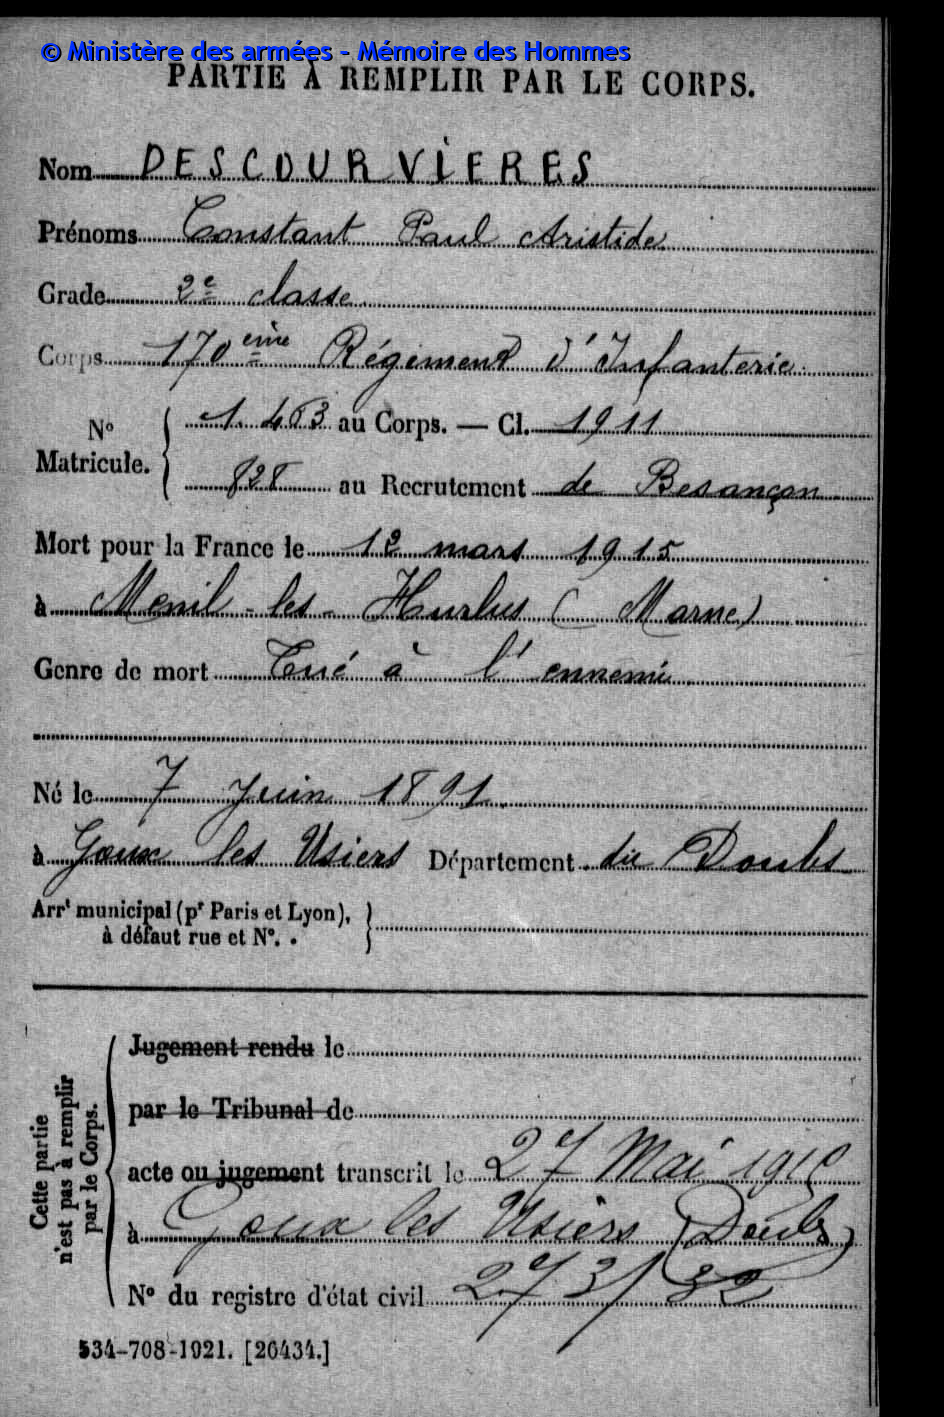 © Ministère des armées - Mémoire des Hommes
PARTIE À REMPLIR PAR LE CORPS.
Nom DESCOURVIÈRES
Prénoms Constant Paul Aristide
Grade 2e classe
Corps 170ème Régiment d'Infanterie
No Matricule. { 1.463 au Corps. — Cl. 1911
828 au Recrutement de Besançon
Mort pour la France le 12 mars 1915
à Menil-les-Hurlus (Marne)
Genre de mort Tué à l'ennemi
Né le 7 Juin 1891
à Goux les Usiers Département du Doubs
Arrt municipal (pr Paris et Lyon),
à défaut rue et No. .
Cette partie n'est pas à remplir par le Corps.
Jugement rendu le
par le Tribunal de
acte ou jugement transcrit le 27 Mai
à Goux les Usiers (Doubs)
No du registre d'état civil 273/32
534-708-1921. [26434.]